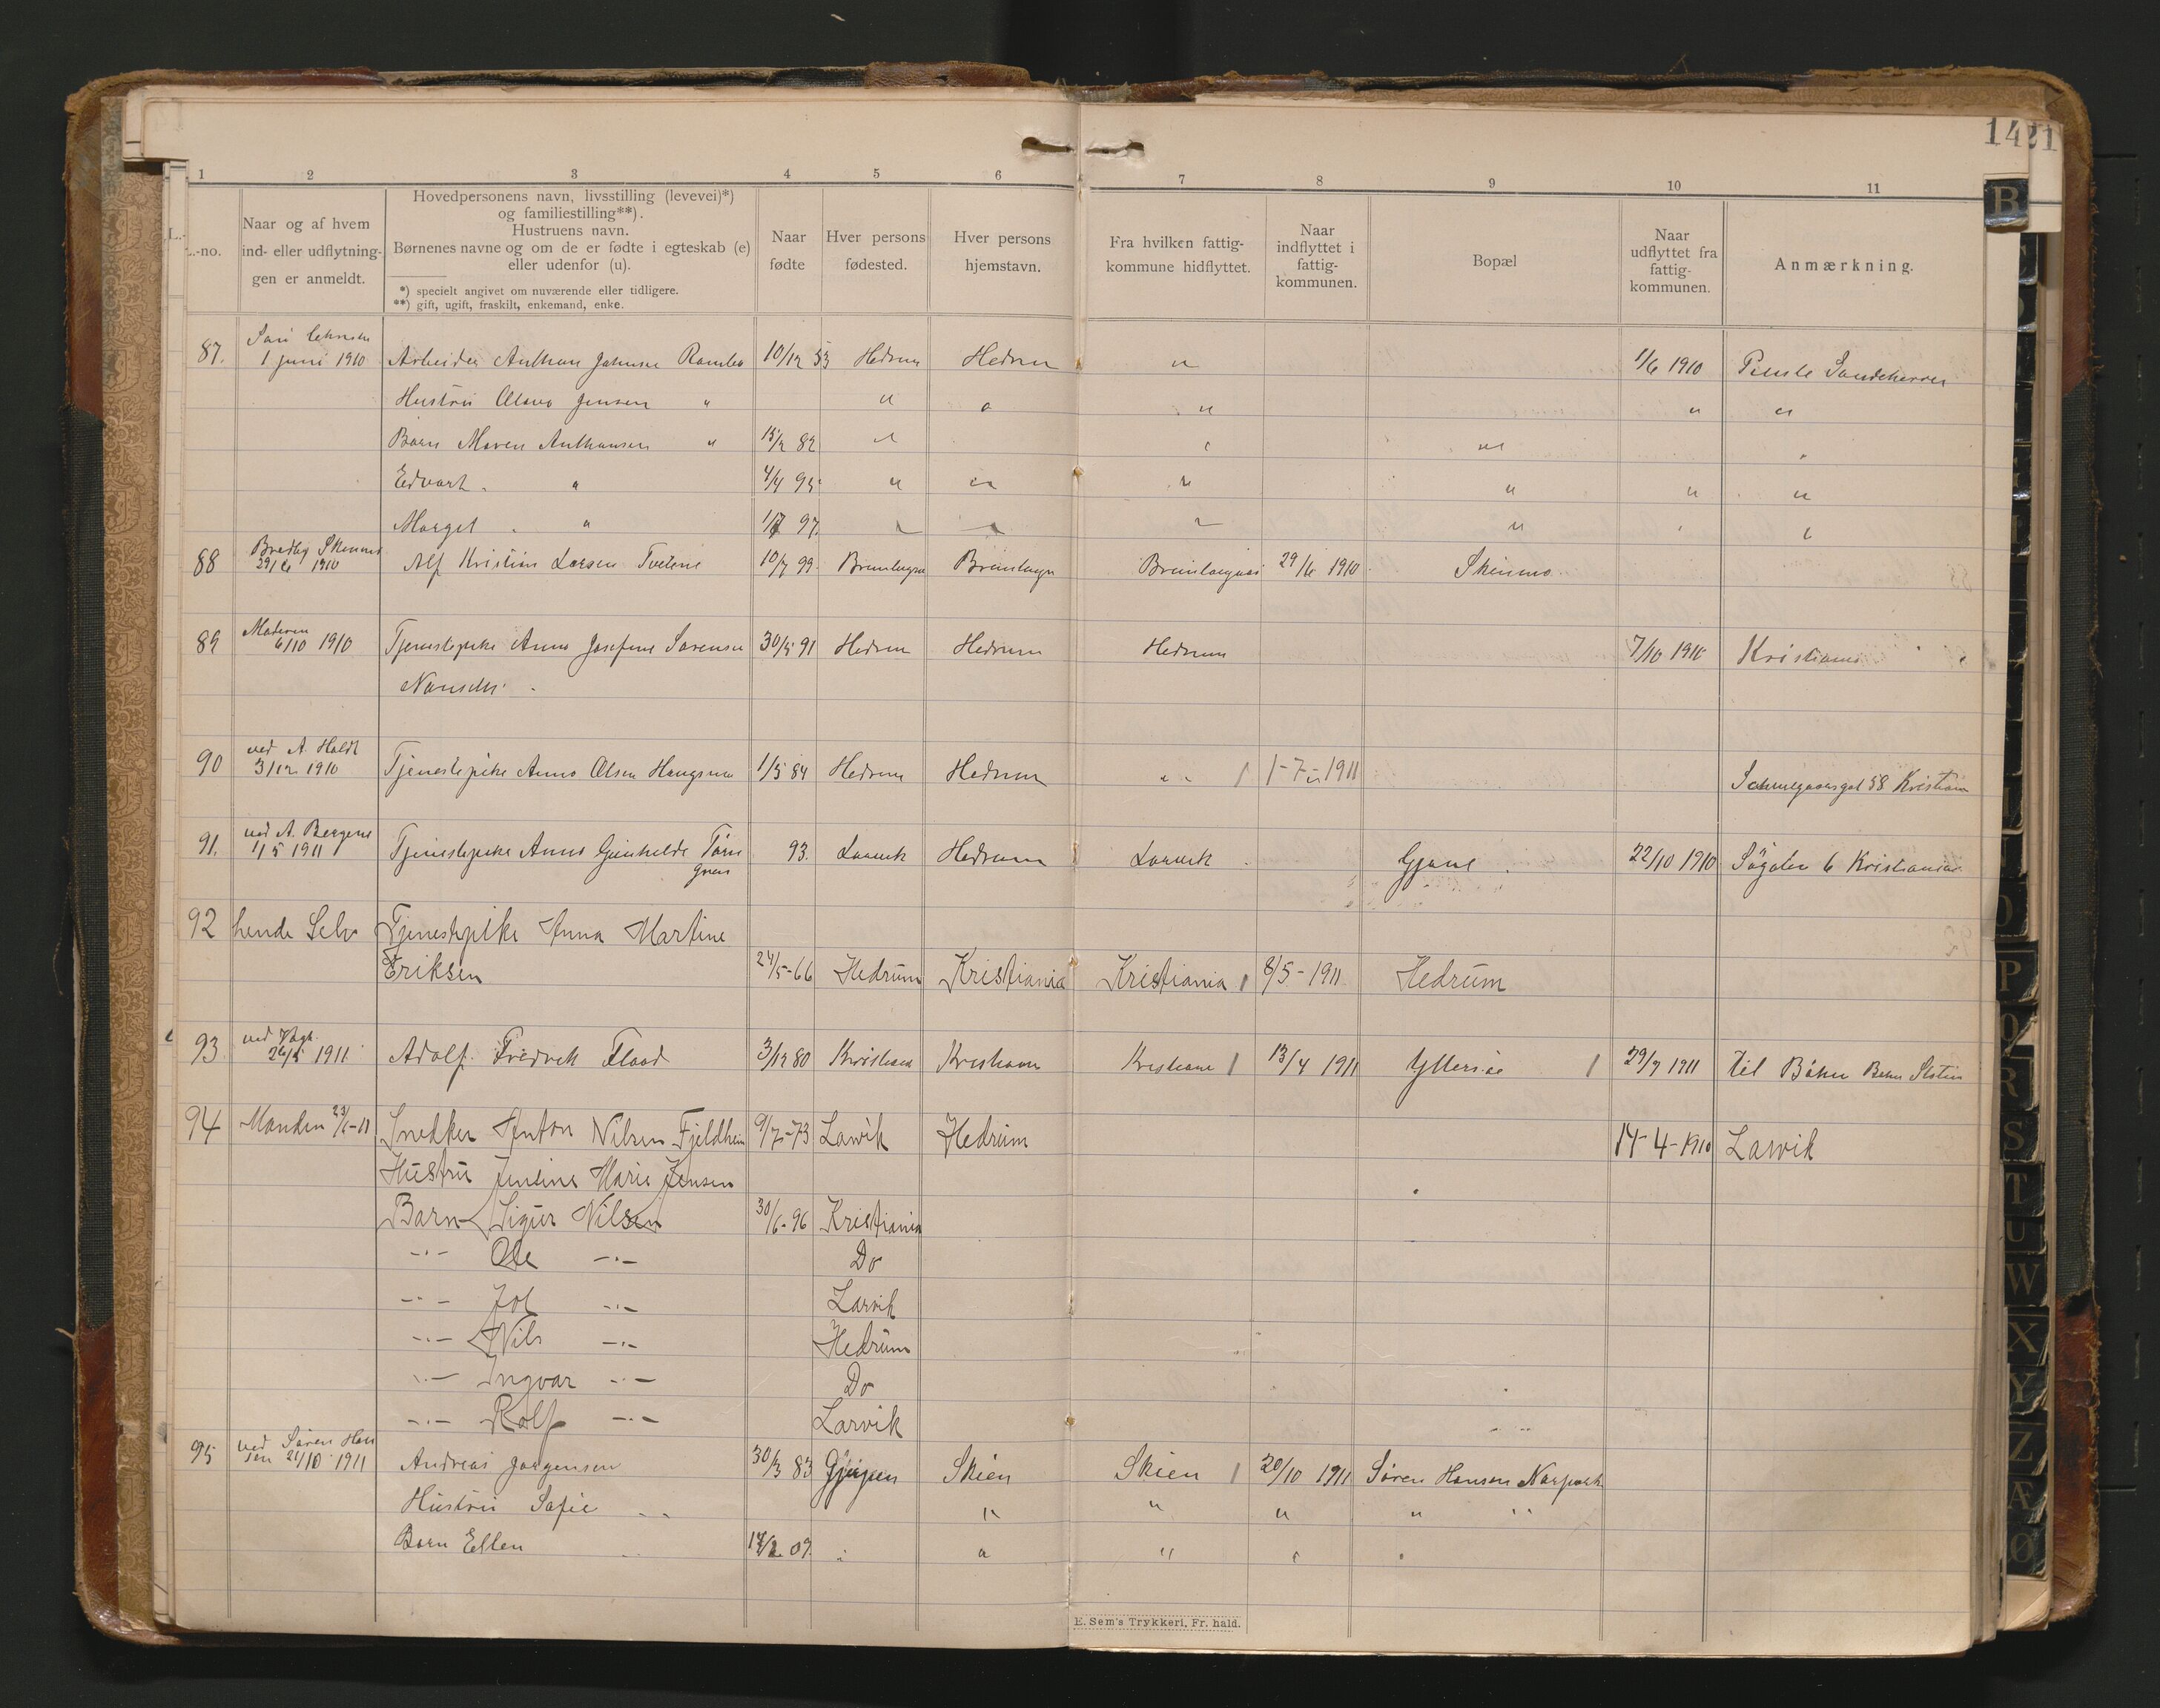 1421
1 2 3 4 5 6 7 8 9 10 11
L.-no.
Naar og af hvem
ind- eller udflytning-
gen er anmeldt.
Hovedpersonens navn, livsstilling (levevei)*)
og familiestilling**).
Hustruens navn.
Børnenes navne og om de er fødte i egteskab (e)
eller udenfor (u).
*) specielt angivet om nuværende eller tidligere.
**) gift, ugift, fraskilt, enkemand, enke.
Naar
fødte
Hver persons
fødested.
Hver persons
hjemstavn.
Fra hvilken fattig-
kommune hidflyttet.
Naar
indflyttet i
fattig-
kommunen.
Bopæl
Naar
udflyttet fra
fattig-
kommunen.
Anmærkning.
87. 1 juni 1910 Arbeider Anthon Johnsen 10/12 53 Hedrum Hedrum " 1/6 1910
Hustru Olava Jensen " " " " " "
Barn Maren Anthonsen " 15/2 82 " " "
Edvart " " 4/4 95 " " " " " "
Marget " " 1/7 97 " " " " " "
88 29/6 1910 Alf Kristian Larsen Tvetene 10/7 99 Brunlagnes Brunlagn Brunlagnes 29/6 1910 Skinmo
89 6/10 1910 Tjenestepike Anna Josefine Sørensen 30/5 91 Hedrum Hedrum Hedrum 7/10 1910 Kristiania
90 ved A. Holdt
3/12 1910 Tjenestepike Anna Olsen 1/5 84 Hedrum Hedrum " " 1-7-1911 58 Kristiania
91. ved A. Bergene
1/5 1911 Tjenestepike Anna Gunhilde 93. Larvik Hedrum Larvik 22/10 1910 6 Kristiania
92 hende Selv Tjenestepike Anna Martine
Eriksen 24/5-66 Hedrum Kristiania Kristiania 8/5-1911 Hedrum
93 ved
26/5 1911 Adolf Fredrik Flood 3/12 80 Kristiania Kristiania Kristiania 13/4 1911 29/7 1911 til
94 Manden Snedker Anton Nilsen Fjeldheim 9/7-73 Larvik Hedrum 14-4-1910 Larvik
Hustru Jensine Marie Jensen
Barn Sigur Nilsen 30/6-96 Kristiania
-"- Ole -"- Do
-"- -"- Larvik
-"- Nils -"- Hedrum
-"- Ingvar -"- Do
-"- Rolf -"- Larvik
95 ved Søren Han
sen 21/10 1911 Andreas Jørgensen 30/3 83 Gjerpen Skien Skien 20/10 1911 Søren Hansen
Hustru Sofie " " " " "
Barn Ellen 09. " " " "
E. Sem's Trykkeri, Fr. hald.
B
P
Q
R
S
T
U
W
X
Y
Z
Æ
Ø